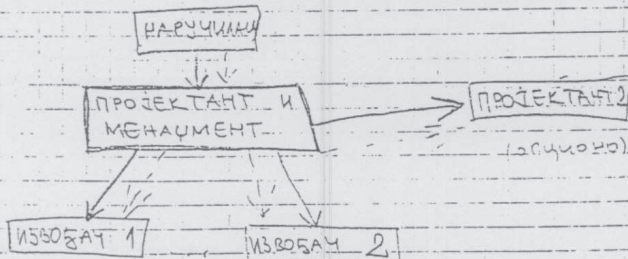 НАРУЧИЛАЦ
ПРОЈЕКТАНТ И
МЕНАЏМЕНТ
ПРОЈЕКТАНТ 2
(опционо)
ИЗВОЂАЧ 1
ИЗВОЂАЧ 2